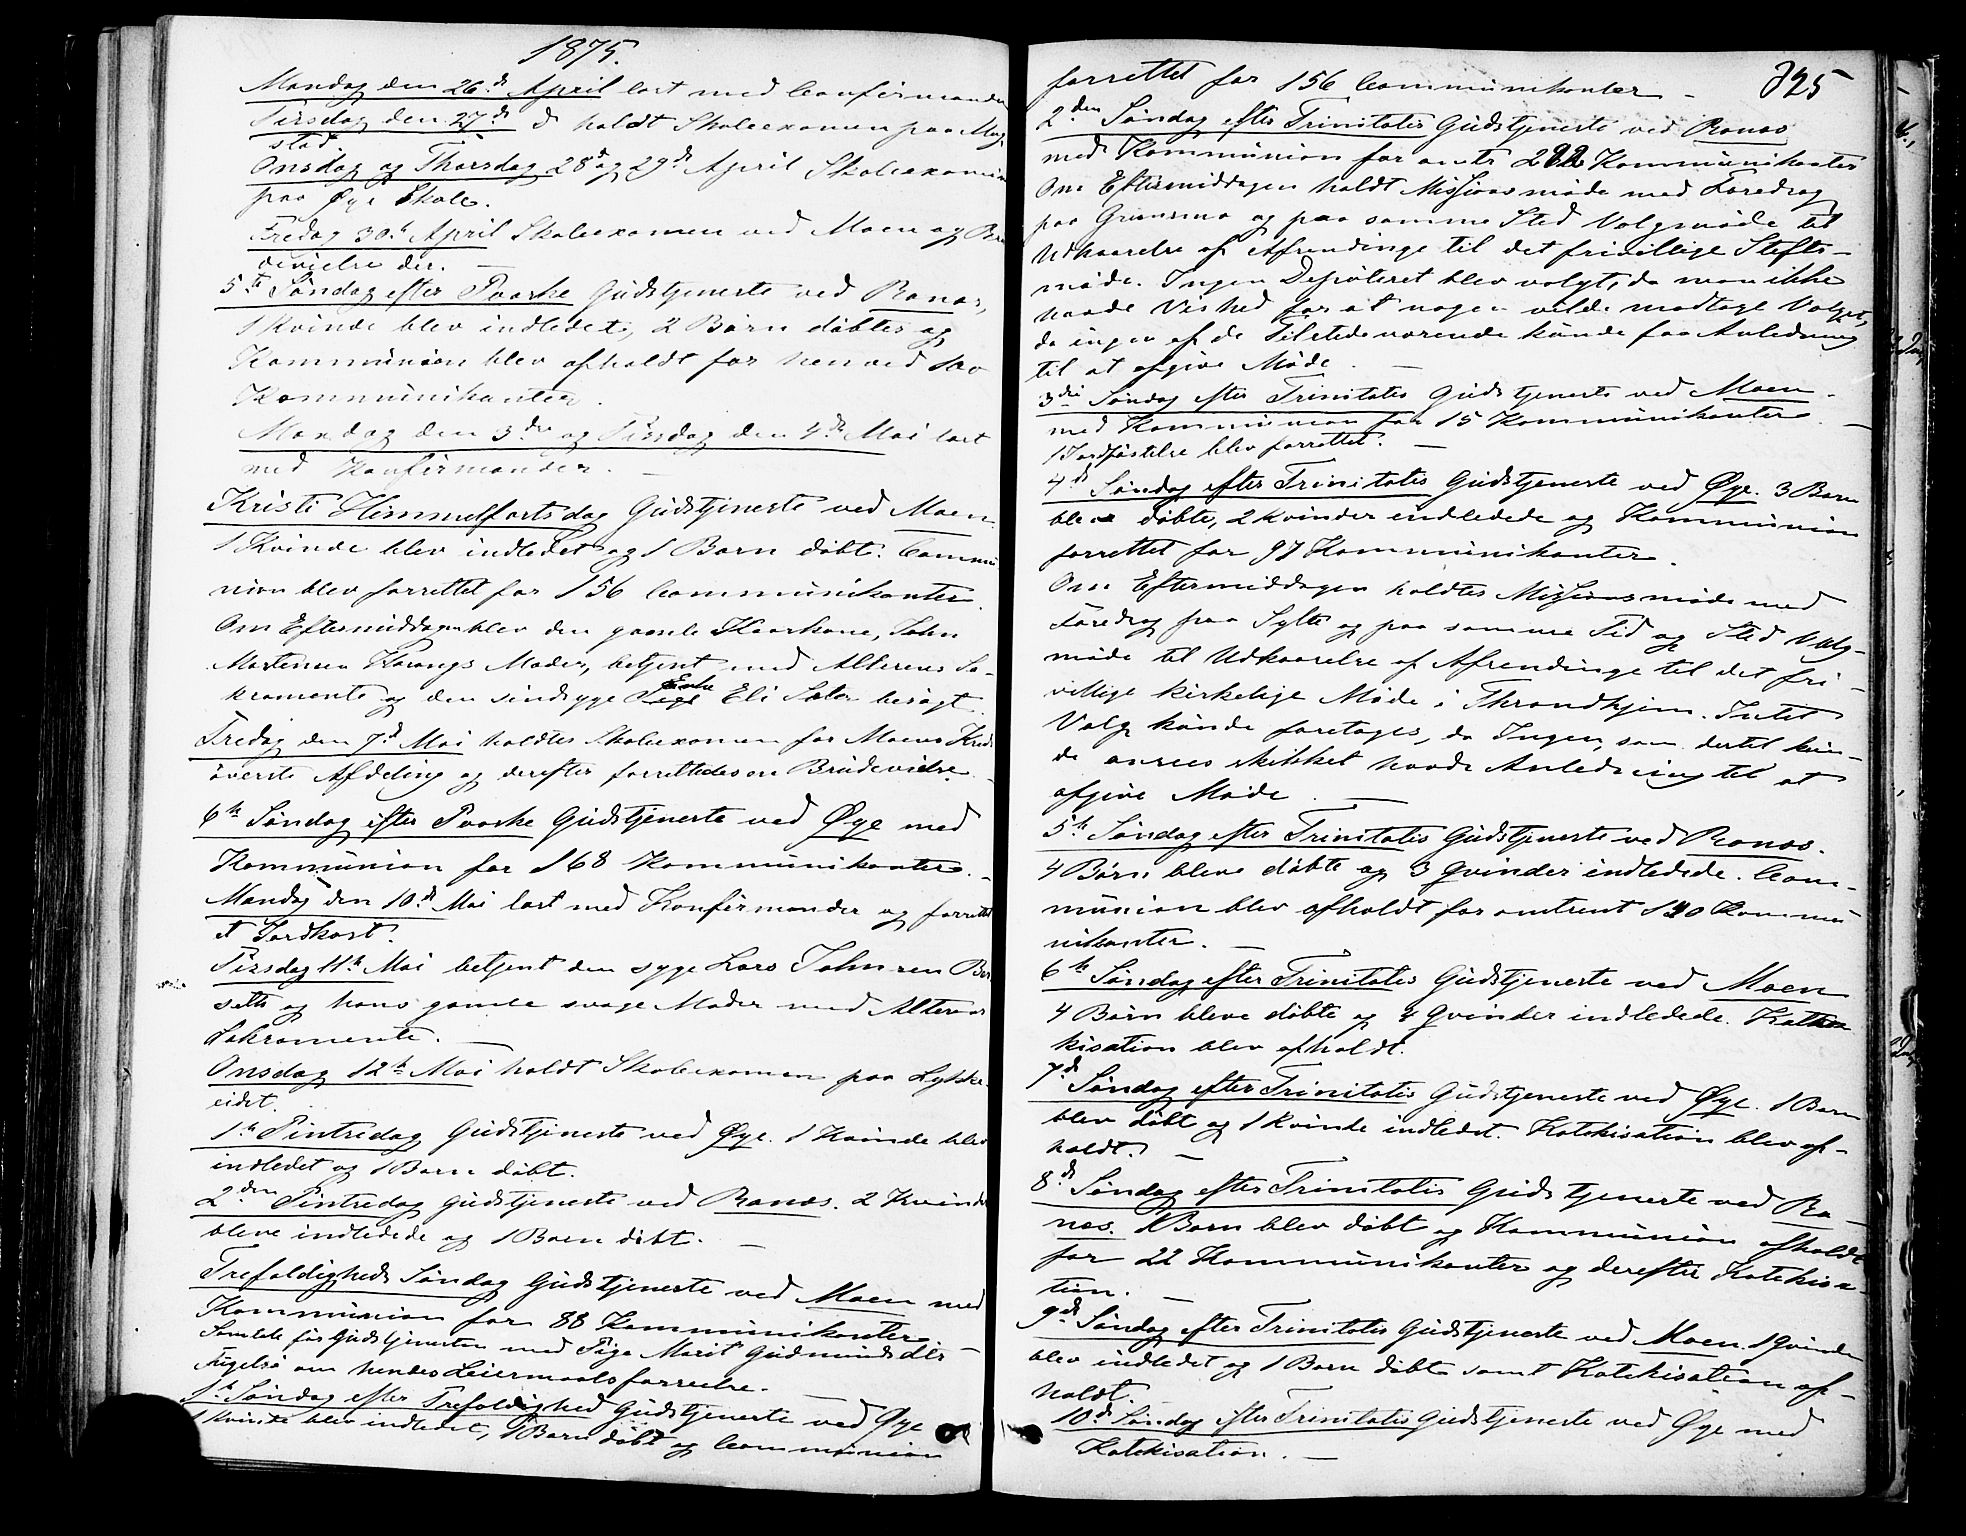 1875.
Mandag den 26d April læst med Confirmander
Tirsdag den 27d holdt Skoleexamen paa Mog-
stad
Onsdag og Thorsdag 28d og 29d April Skoleexamen
paa Øye Skole.
Fredag 30te April Skoleexamen ved Moen og Bru
devielse der. —
5te Søndag efter Paaske Gudstjeneste ved Ranæs,
1 Kvinde blev indledet, 2 Børn døbtes og
Kommunion blev afholdt for henved
Kommunikanter.
Mandag den 3die og Tirsdag den 4de Mai læst
med Konfirmander. —
Kristi Himmelfartsdag Gudstjeneste ved Moen.
1 Kvinde blev indledet og 1 Barn døbt. Commu
nion blev forrettet for 156 Communikanter.
Om Eftermiddagen blev den gamle Kaarkone, John
Mortensen Harangs Moder, betjent med Alterens Sa-
kramente og den sindsyge Enke Eli Sæter besøgt.
Fredag den 7d Mai holdtes Skoleexamen for Moens Kreds
øverste Afdeling og derefter forrettedes en Brudevielse.
6te Søndag efter Paaske Gudstjeneste ved Øye med
Kommunion for 168 Kommunikanter. —
Mandag den 10d Mai læst med Konfirmander og forrettet
et Jordkast.
Tirsdag 11te Mai betjent den syge Lars Johnsen Bø
sæth og hans gamle svage Moder med Alterens
Sakramente. —
Onsdag 12te Mai holdt Skoleexamen paa Lykke-
eidet.
1te Pintsedag Gudstjeneste ved Øye. 1 Kvinde blev
indledet og 1 Barn døbt.
2den Pintsedag Gudstjeneste ved Ranæs. 2 Kvinder
bleve indledede og 1 Barn døbt. —
Trefoldigheds Søndag Gudstjeneste ved Moen med
Kommunion for 88 Kommunikanter.
Samlede før Gudstjenesten med Pige Marit Gudmundsdtr
om hendes Leiermaalsforseelse. —
1te Søndag efter Trefoldighed Gudstjeneste ved Øye
1 Kvinde blev indledet, 1 Barn døbt og Communion
325
forrettet for 156 Communikanter —
2den Søndag efter Trinitatis Gudstjeneste ved Ranæs
med Kommunion for omtr Kommunikanter
Om Eftermiddagen holdt Missionsmøde med Foredrag
paa Grimsmo og paa samme Sted Valgmøde til
Udkaarelse af Afsendinge til det frivillige Stifts-
møde. Ingen Deputeret blev valgt, da man ikke
havde Vished for at nogen vilde modtage Valget,
da ingen af de Tilstedeværende kunde faa Anledning
til at afgive Møde. —
3die Søndag efter Trinitatis Gudstjeneste ved Moen
med Kommunion for 15 Kommunikanter. —
1 Jordfæstelse blev forrettet. —
4d Søndag efter Trinitatis Gudstjeneste ved Øye. 3 Børn
bleve døbte, 2 Kvinder indledede og Kommunion
forrettet for 97 Kommunikanter.
Om Eftermiddagen holdtes Missionsmøde med
Foredrag paa Sylte og paa samme Tid og Sted Valg-
møde til Udkaarelse af Afsendinge til det fri-
villige kirkelige Møde i Throndhjem. Intet
Valg kunde foretages, da Ingen, som dertil kun-
de ansees skikket havde Anledning til at
afgive Møde. —
5te Søndag efter Trinitatis Gudstjeneste ved Ranæs.
4 Børn bleve døbte og 3 Qvinder indledede. Com-
munion blev afholdt for omtrent Kommu
nikanter. —
6te Søndag efter Trinitatis Gudstjeneste ved Moen
4 Børn bleve døbte og 4 Qvinder indledede. Kathe
kisation blev afholdt.
7d Søndag efter Trinitatis Gudstjeneste ved Øye. 1 Barn
blev døbt og 1 Kvinde indledet. Katekisation blev af-
holdt. —
8d Søndag efter Trinitatis Gudstjeneste ved Ra-
næs. 1 Barn blev døbt og Kommunion afholdt
for 22 Kommunikanter og derefter Katekisa-
tion. —
9d Søndag efter Trinitatis Gudstjeneste ved Moen. 1 Qvinde
blev indledet og 1 Barn døbt samt Katekisation af-
holdt.
10d Søndag efter Trinitatis Gudstjeneste ved Øye med
Katekisation. —